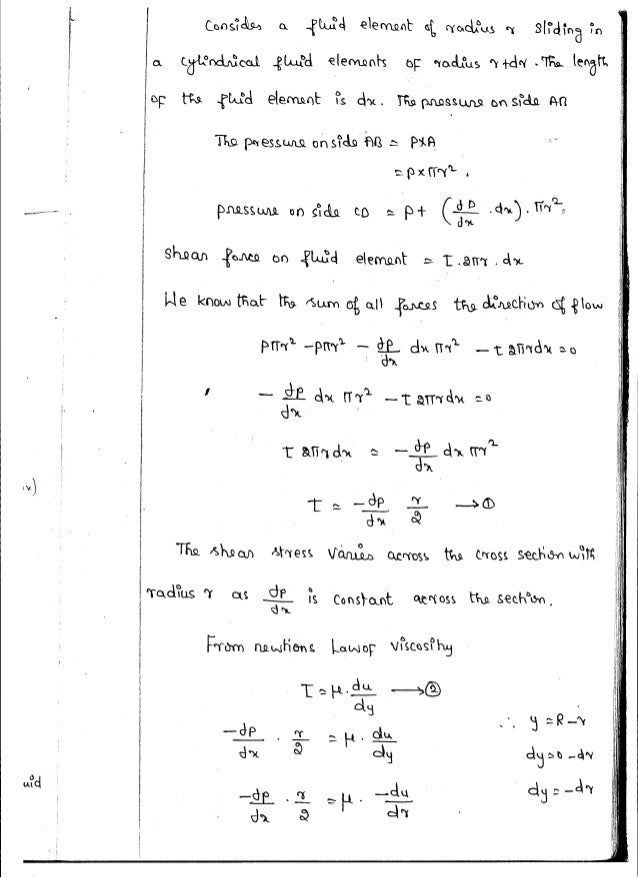 Consider a fluid element of radius r sliding in
a cylindrical fluid elements of radius r+dr. The length
of the fluid element is dx. The pressure on side AB
The pressure on side AB = P×A
= p×πr².
pressure on side CD = p+ (dp/dx .dx). πr².
Shear force on fluid element = τ.2πr.dx
We know that the sum of all forces the direction of flow
pπr² -pπr² - dp/dx dx πr² - τ 2πrdx =0
- dp/dx dx πr² - τ 2πrdx =0
τ 2πrdx = - dp/dx dx πr²
x)
τ = -dp/dx r/2 →①
The shear stress varies across the cross section with
radius r as dp/dx is constant across the section.
From newtions Law of viscosity
τ = μ. du/dy →②
-dp/dx . r/2 = μ. du/dy
∴ y = R-r
dy=0-dr
dy=-dr
uid
-dp/dx . r/2 = μ. -du/dr